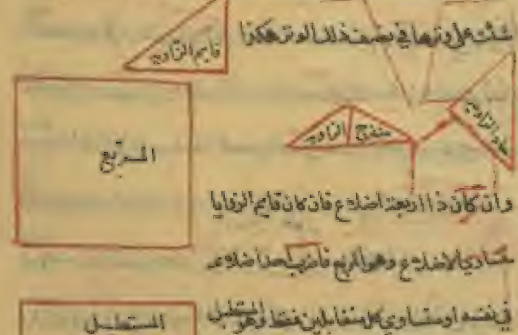 مثلث على وترها في نصف ذلك الوتر هكذا
قايم الزاويه
حاد الزاويه
منفرج الزاويه
المربع
وان كان ذا اربعة اضلاع فان كان قايم الزوايا
متساوي الاضلاع وهو المربع فاضرب احد اضلاعه
في نفسه او متساوي كل متقابلين فقط وهو المستطيل
المستطيل